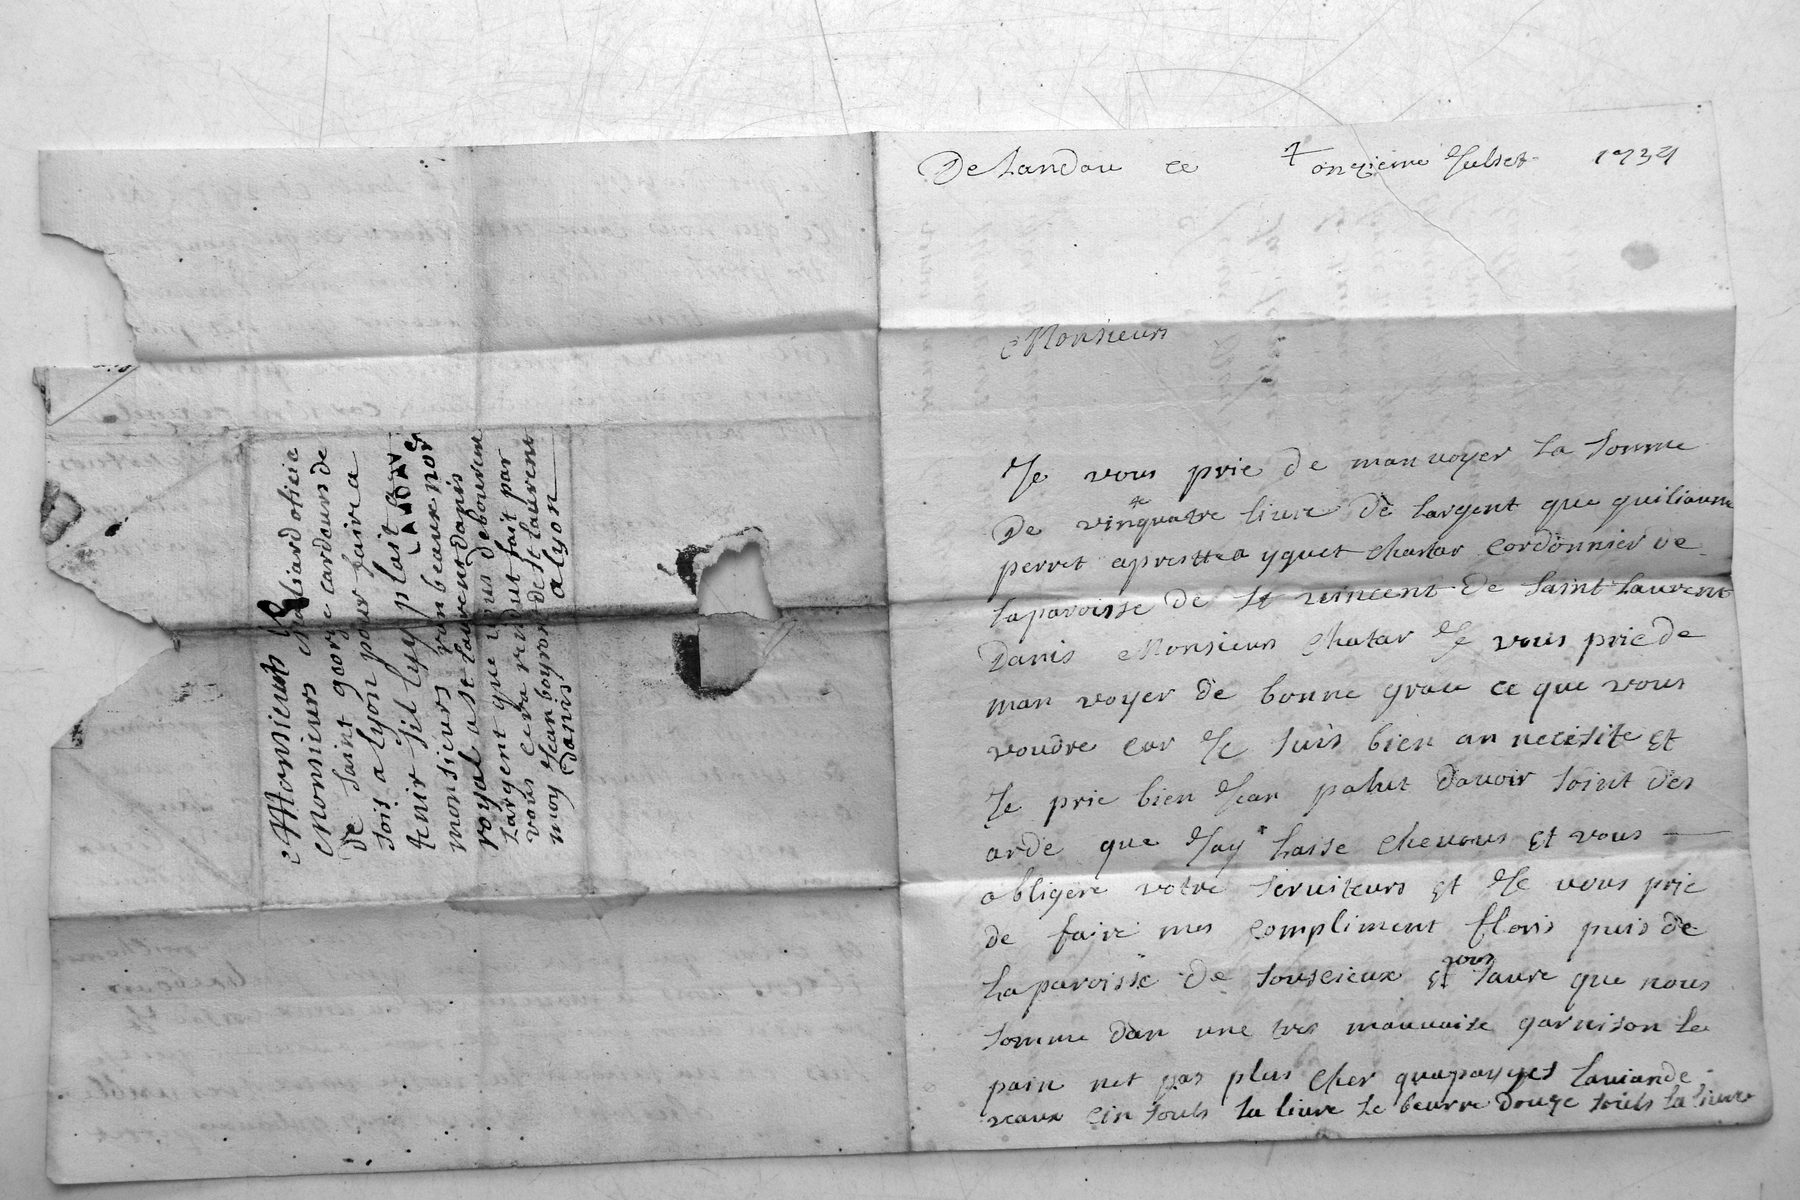 De Landau ce onzieme Julliet 1734
Monsieurs
Je vous prie de manuoyer la somme
De vin de quatre liure de largent que guiliaume
perret aprestte a yquet chatar cordonnier de
laparoisse de st vincent de saint Laurent
Danis Monsieurs Chatar Je vous prie de
man voyer de bonne grace ce que vous
voudre car Je suis bien an necisite et
Je prie bien Jean palut davoir soint des
arde que Jay laisse cheuous et vous
obligere votre seruiteurs et Je vous prie
de faire mes compliment floris puis de
Laparoisse de Souscieux et vous saure que nous
somme dan une tres mauuaise garnison le
pain net pas plus cher quapayyes lauiande
vaux cin souls la liure le beurre douze souls la liure
Monsieurs
Monsieurs galiard oficie
De saint george cardeurs de
sois a Lyon pour faire a
tenir sil luy plait
LANDAV
monsieurs jean beaux nor
royal a st laurent danis
Largent que vous debourere
vous cera randut fait par
moy Jean boyron de st laurent
Danis a lyon